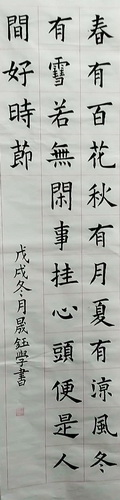 春有百花秋有月夏有涼風冬
有雪若無閑事挂心頭便是人
間好時節
戊戌冬月晟鈺學書